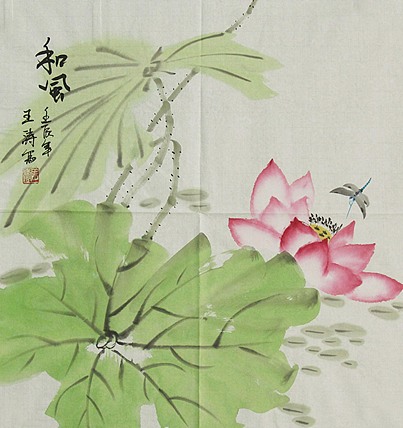 和風
壬辰年
王濤寫